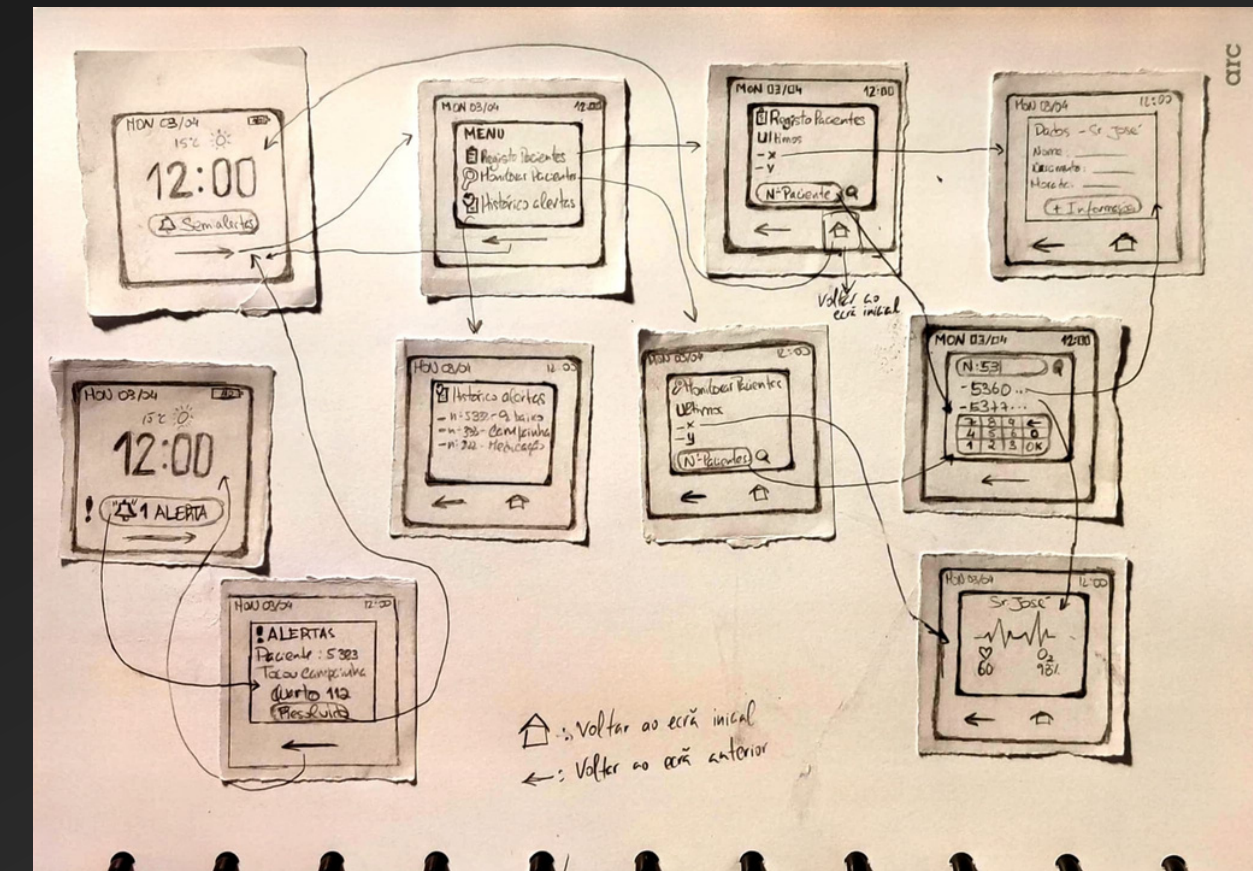 arc
MON 03/04
15°C
12:00
Sem alertas
MON 03/04 12:00
MENU
Registo Pacientes
Monitorar Pacientes
Histórico alertas
MON 03/04 12:00
Registo Pacientes
Ultimos
- x
- y
Nº Paciente
Voltar ao
ecrã inicial
MON 03/04 12:00
Dados - Sr. José
Nome:
Morada:
MON 03/04
15°C
12:00
! 1 ALERTA
MON 03/04 12:00
Histórico alertas
MON 03/04 12:00
Monitorar Pacientes
Ultimos
- x
- y
Nº Pacientes
MON 03/04 12:00
N: 53
- 5360...
- 5377...
7 8 9 ←
4 5 6 0
1 2 3 OK
MON 03/04 12:00
! ALERTAS
Paciente: 5323
Tocou Campainha
Quarto 112
Resolvido
MON 03/04 12:00
Sr. José
O2
60 98%
: Voltar ao ecrã inicial
←: Voltar ao ecrã anterior